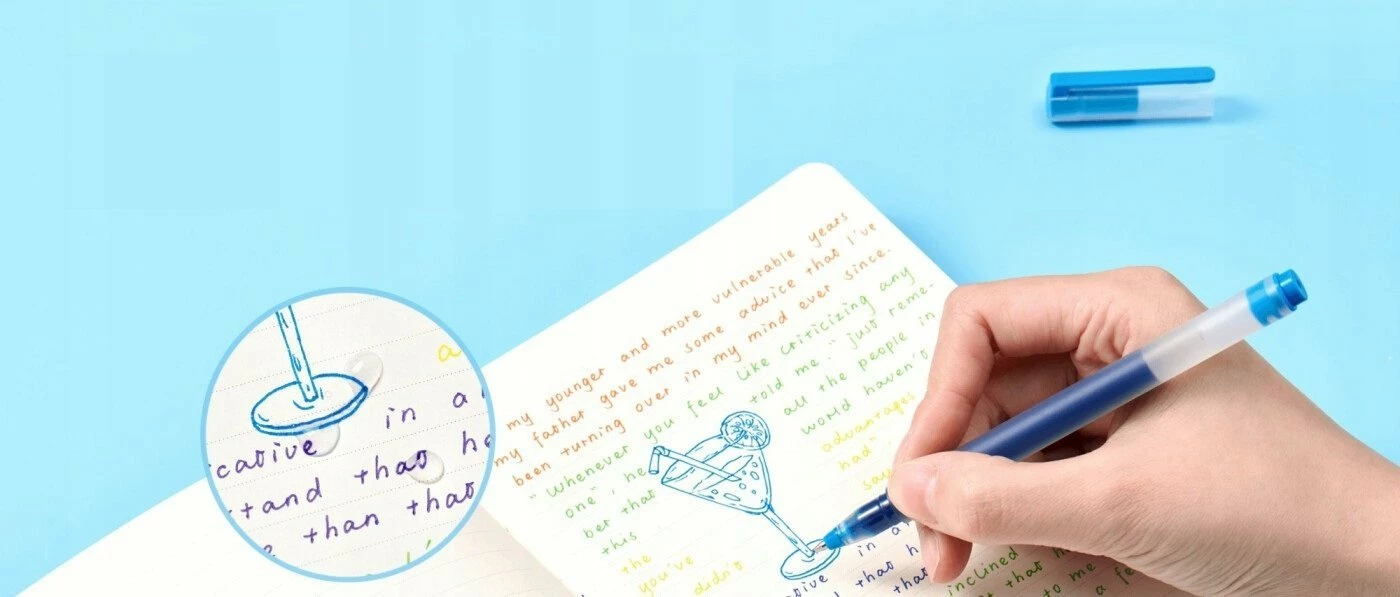 my younger and more vulnerable years
my father gave me some advice that I've
been turning over in my mind ever since.
"Whenever you feel like criticizing any
one", he told me." just reme-
ber that all the people in
this world haven't
the advantages
you've had".
didn't say
in a
that h
that
inclined
that h
to me
a fe
a
cative in a
tand that he
than that